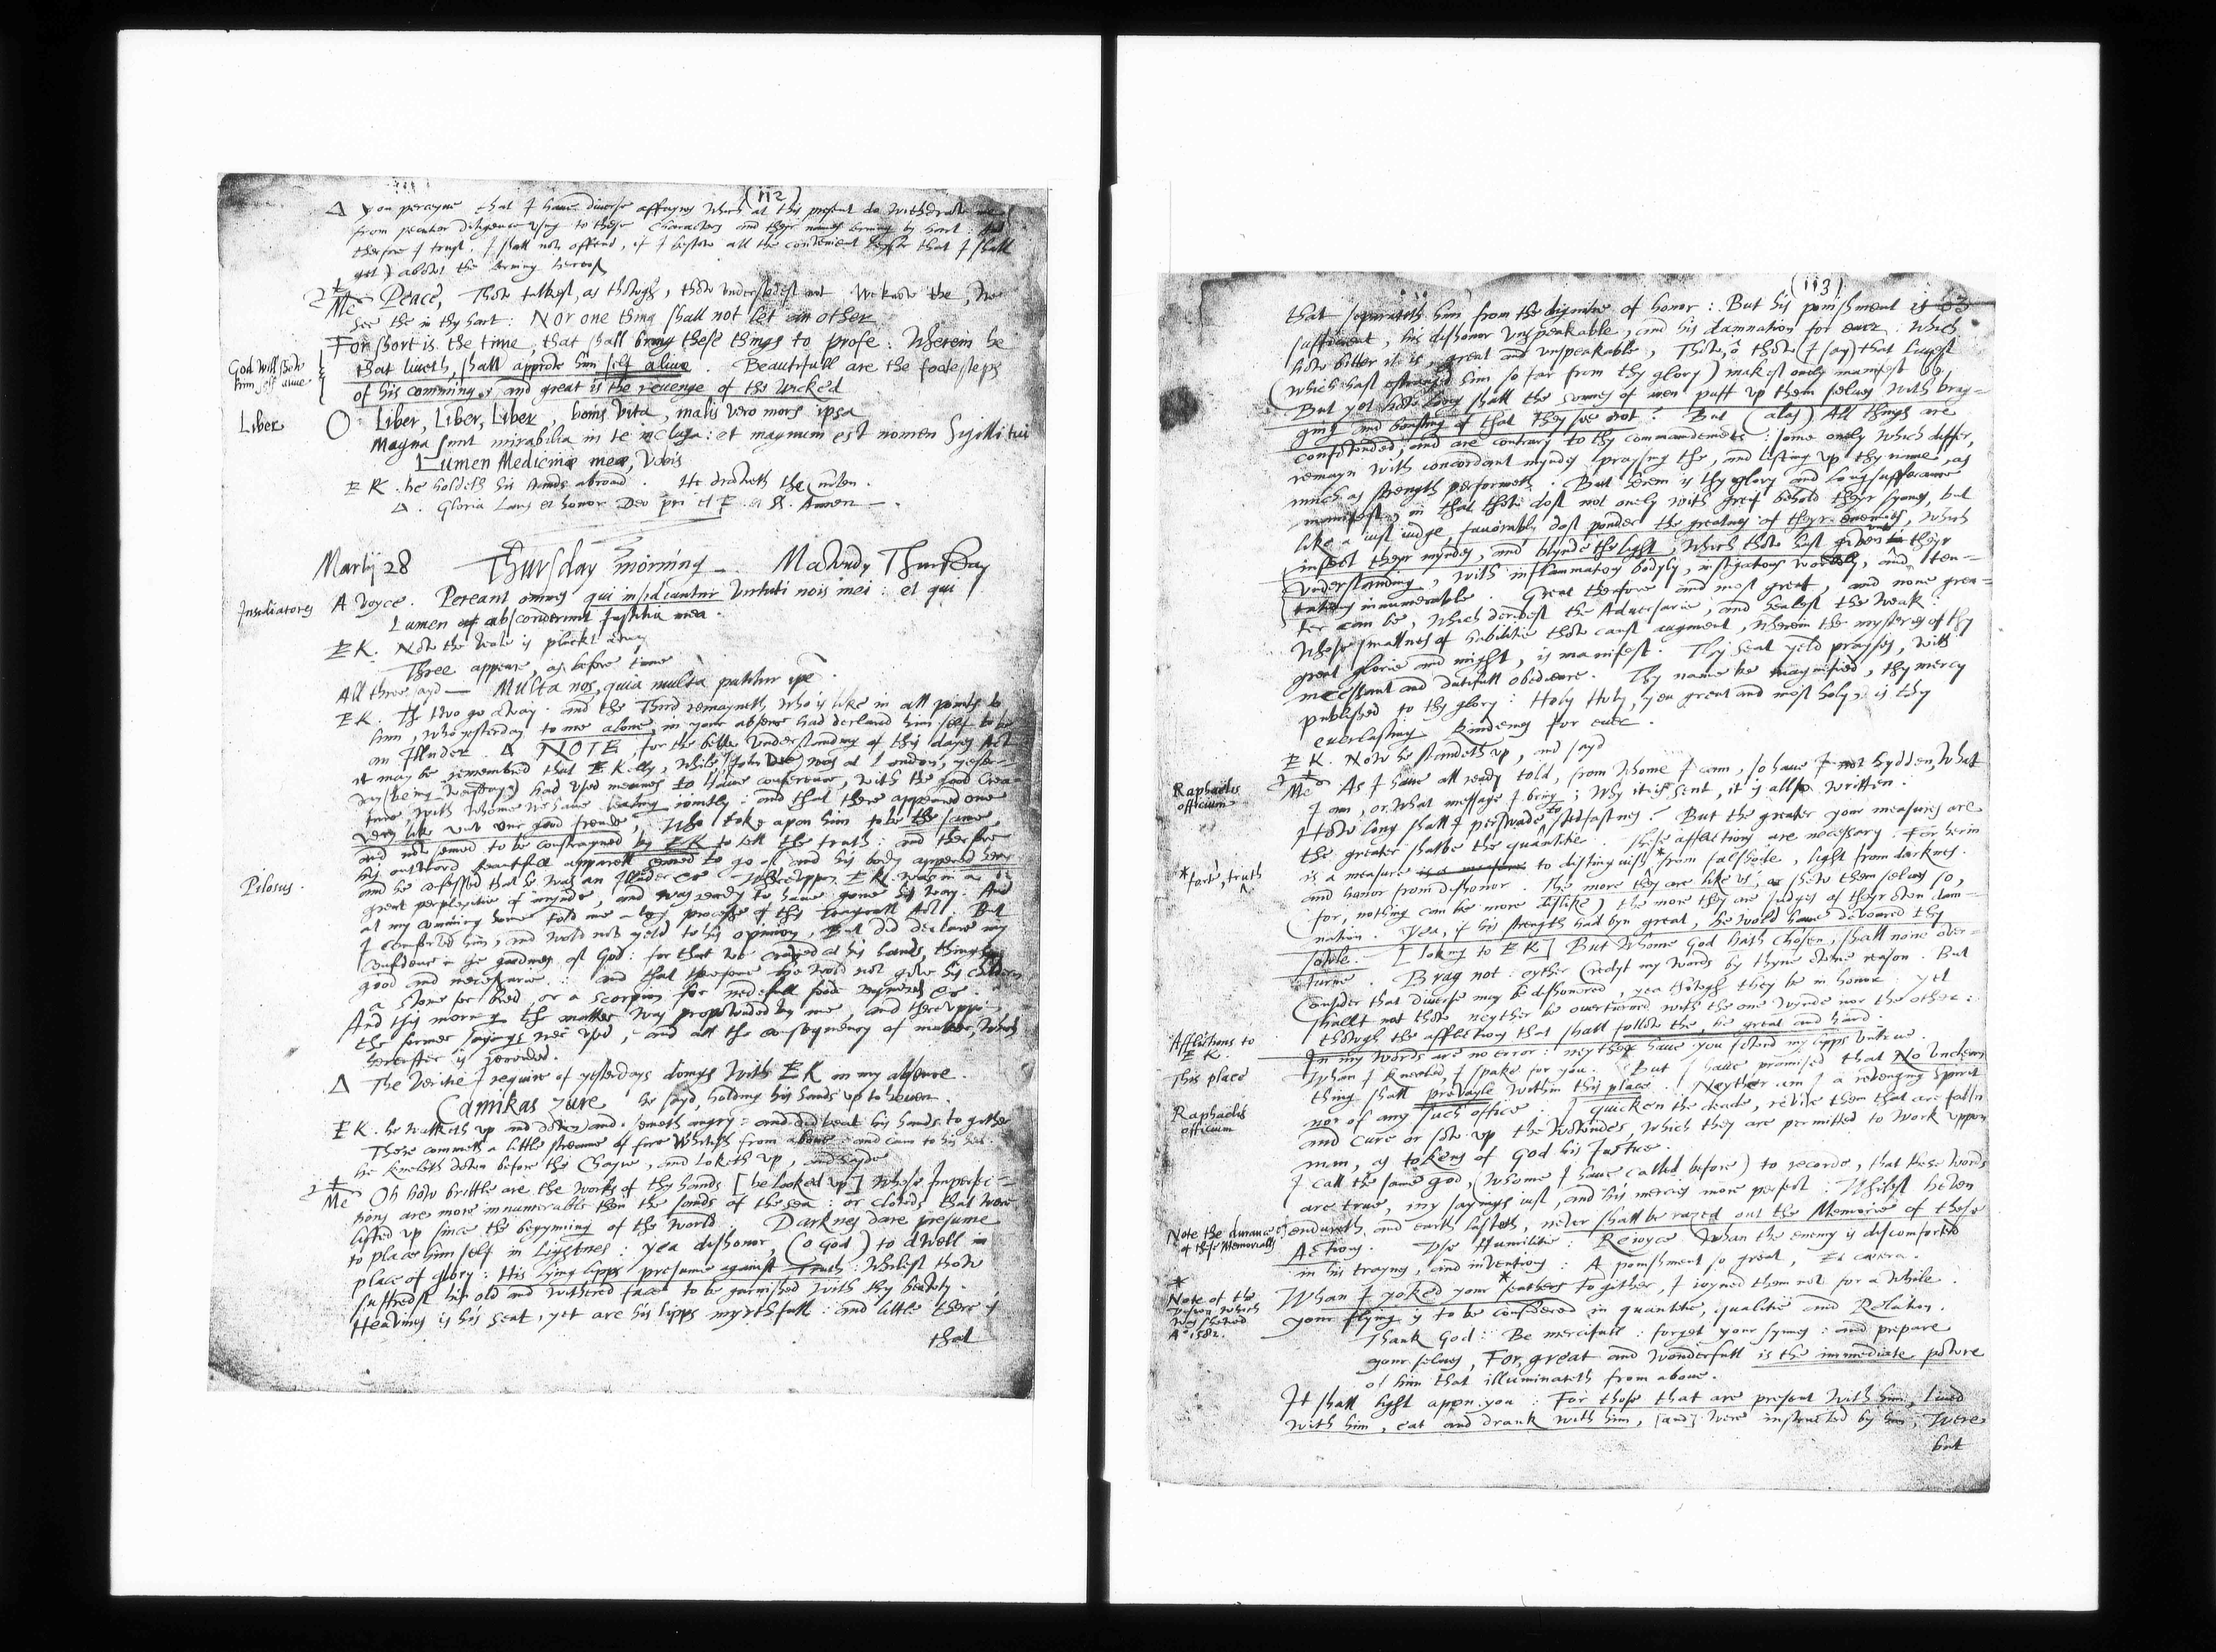 (112)
Δ you perceyue that I haue diuerse affayres which at this present do withdraw me
from peculier diligence vsing to these Characters and theyr names lerning by hart: And
therfore I trust, I shall not offend, if I bestow all the convenient leysor that I shall
get, abowt the lerning hereof
Me Peace, Thow talkest, as thowgh, thow vnderstodest not. We know the, we
see the in thy hart: Nor one thing shall not let an other.
For short is the time, that shall bring these things to profe: Wherein he
God will shew
him self aliue
that liueth, shall approve him self aliue. Beautifull are the footesteps
of his comming, and great is the revenge of the wicked.
Liber
O Liber, Liber, Liber, bonis vita, malis vero mors ipsa
Magna sunt mirabilia in te inclusa: et magnum est nomen Sigilli tui
Lumen Medicinæ meæ, Vobis
EK. he holdeth his hands abroad. He draweth the curten.
Δ. Gloria Laus et honor Deo pri et F. et S. Amen
Martij 28 Thursday morning. Mawndy Thursday
Insidiatores
A voyce. Pereant omnes qui insidiantur virtuti nois mei: et qui
Lumen absconderunt Justitiæ meæ.
EK. Now the vale is pluckt away
Three appeare, as before time
All three sayd — Multa nos, quia multa patitur ipse.
EK. The two go away: and the Third remayneth, who is like in all points to
him, who yesterday to me alone, in your absence had declared him self to be
an Illuder. Δ NOTE, for the better vnderstanding of this dayes Act
it may be remembred that E Kelly, while I (John Dee) was at London, yester-
day (being wensday) had vsed meanes to haue conference, with the good Crea-
tures, with whome we haue dealing iointly: and that there appeared one
very like vnto our good frende, Who toke apon him to be the same,
and now semed to be constrayned by EK to tell the truth: and therfore
his outward beautifull apparell semed to go of, and his body appered hery
Pilosus.
and he confessed that he was an Illuder &c. Whervppon EK was in a
great perplexitie of mynde, and was ready to haue gone his way. And
at my comming home told me a long processe of this Tragicall Act. But
I comforted him, and wold not yeld to his opinion, But did declare my
confidence in the goodnes of God: for that we craved at his hands, things
good and necessarie: and that therfore he wold not giue his children
a stone for bred, or a scorpion for nedefull food required &c.
And this morning the matter was propownded by me, and thervppon
the former sayings were vsed, and all the consequences of matter, which
hereafter is recorded.
Δ The veritie I require of yesterdays doings with EK in my absence.
Camikas zure he sayd, holding his hands vp to heuen.
EK. he walketh vp and down and semeth angry: and did beat his hands to gither
There commeth a little streame of fire whitish from aboue: and cam to his hed.
he kneleth down before the Chayre, and loketh vp, and sayde
Me Oh how brittle are the works of thy hands [he looked vp] whose Imperfec-
tions are more innumerable then the sands of the sea: or clowds that were
lifted vp since the begynning of the world. Darknes dare presume
to place him self in Lightnes: yea dishonor, (o God) to dwell in
place of glory: His lying lipps presume against Truth: whilest thow
suffredst his old and withered face to be garnished with thy bewty.
Heavines is his seat, yet are his lipps myrthfull: and little there is
that
(113)
that separateth him from the dignitie of honor: But his ponishment is
sufficient, his dishonor vnspeakable, and his damnation for euer: which
how bitter it is, great and vnspeakable, Thow, ô thow (I say) that liuest
(which hast estranged him so far from thy glory) makest onely manifest by.
But yet how long shall the sonnes of men puff vp them selues with brag-
ging and boasting of that they see not? But (alas) All things are
confownded, and are contrary to thy commandements: some onely which differ,
remayn with concordant myndes praysing the, and lifting vp thy name, as
much as strength performeth. But herein is thy glory and longsufferance
manifest, in that thow dost not onely with greif behold theyr synnes, but
like a iust iudge, favorably dost ponder the greatnes of theyr enemies, which
infect theyr myndes, and blynde the light, which thow hast given vnto theyr
vnderstanding, with inflammations bodyly, instigations worldly, and ten-
tations innumerable. Great therfore and most great, and none grea-
ter can be, which deridest the Aduersarie, and healest the weak:
whose smallnes of habilitie thow canst augment, wherein the mysteries of thy
great glorie and might, is manifest. Thy seat yeld prayses, with
incessant and dutifull obedience. Thy name be magnified, thy mercy
published to thy glory: Holy Holy, yea great and most holy, is thy
everlasting kindenes for euer.
EK. Now he standeth vp, and sayd
Raphaelis
officium
Me As I haue all ready told, from whome I cam, so haue I not hydden, what
I am, or what message I bring; Why it is sent, it is allso written.
How long shall I perswade to stedfastnes? But the greater your measures are
the greater shalbe the quantitie. These afflictions are necessary. For herin
*forte, truth
is a measure to distinguish* from falshode, light from darknes.
and honor from dishonor. The more they are like vs, or shew them selues so,
(for, nothing can be more dislike) the more they are Judges of theyr own dam-
nation. Yea, if his strength had byn great, he wold haue devoured thy
sowle. [loking to EK] But whome God hath chosen, shall none over-
turne. Brag not: eyther Credyt my words by thyne owne reason. But
Consider that diuerse may be dishonored, yea thowgh they be in honor: yet
shallt not thow neyther be overturned with the one wynde nor the other:
Afflictions to
EK.
thowgh the afflictions that shall follow the, be great and hard.
In my words are no error: neyther haue you fownd my lipps vntrue.
This place
Whan I kneeled, I spake for you. But I haue promised that No vncleane
thing shall prevayle within this place. Neyther am I a revenging spirit
Raphaelis
officium
nor of any such office. I quicken the dead, revive them that are falln
and cure or sow vp the wowndes, which they are permitted to work vppon
man, as tokens of God his Justice.
I call the same god, (whome I haue called before) to recorde, that these words
are true, my sayings iust, and his mercies more perfect: Whilest heven
Note the durance
of these Memorialls
endureth, and earth lasteth, never shall be razed out the Memorie of these
Actions. Vse Humilitie: Reioyce whan the enemy is discomforted
in his traynes, and inventions: A ponishment so great, Et cætera.
*
Note of the
vision which
was shewed
Ao 1582.
Whan I yoked your *feathers to gither, I ioyned them not for a while.
your flying is to be considered in quantitie, qualitie and Relation.
Thank God: Be mercifull: forget your synnes: and prepare
your selues, For, great and wonderfull is the immediate powre
of him that illuminateth from aboue.
It shall light apon you: For those that are present with him, liued
with him, eat and drank with him, [and] were instructed by him, Were
but